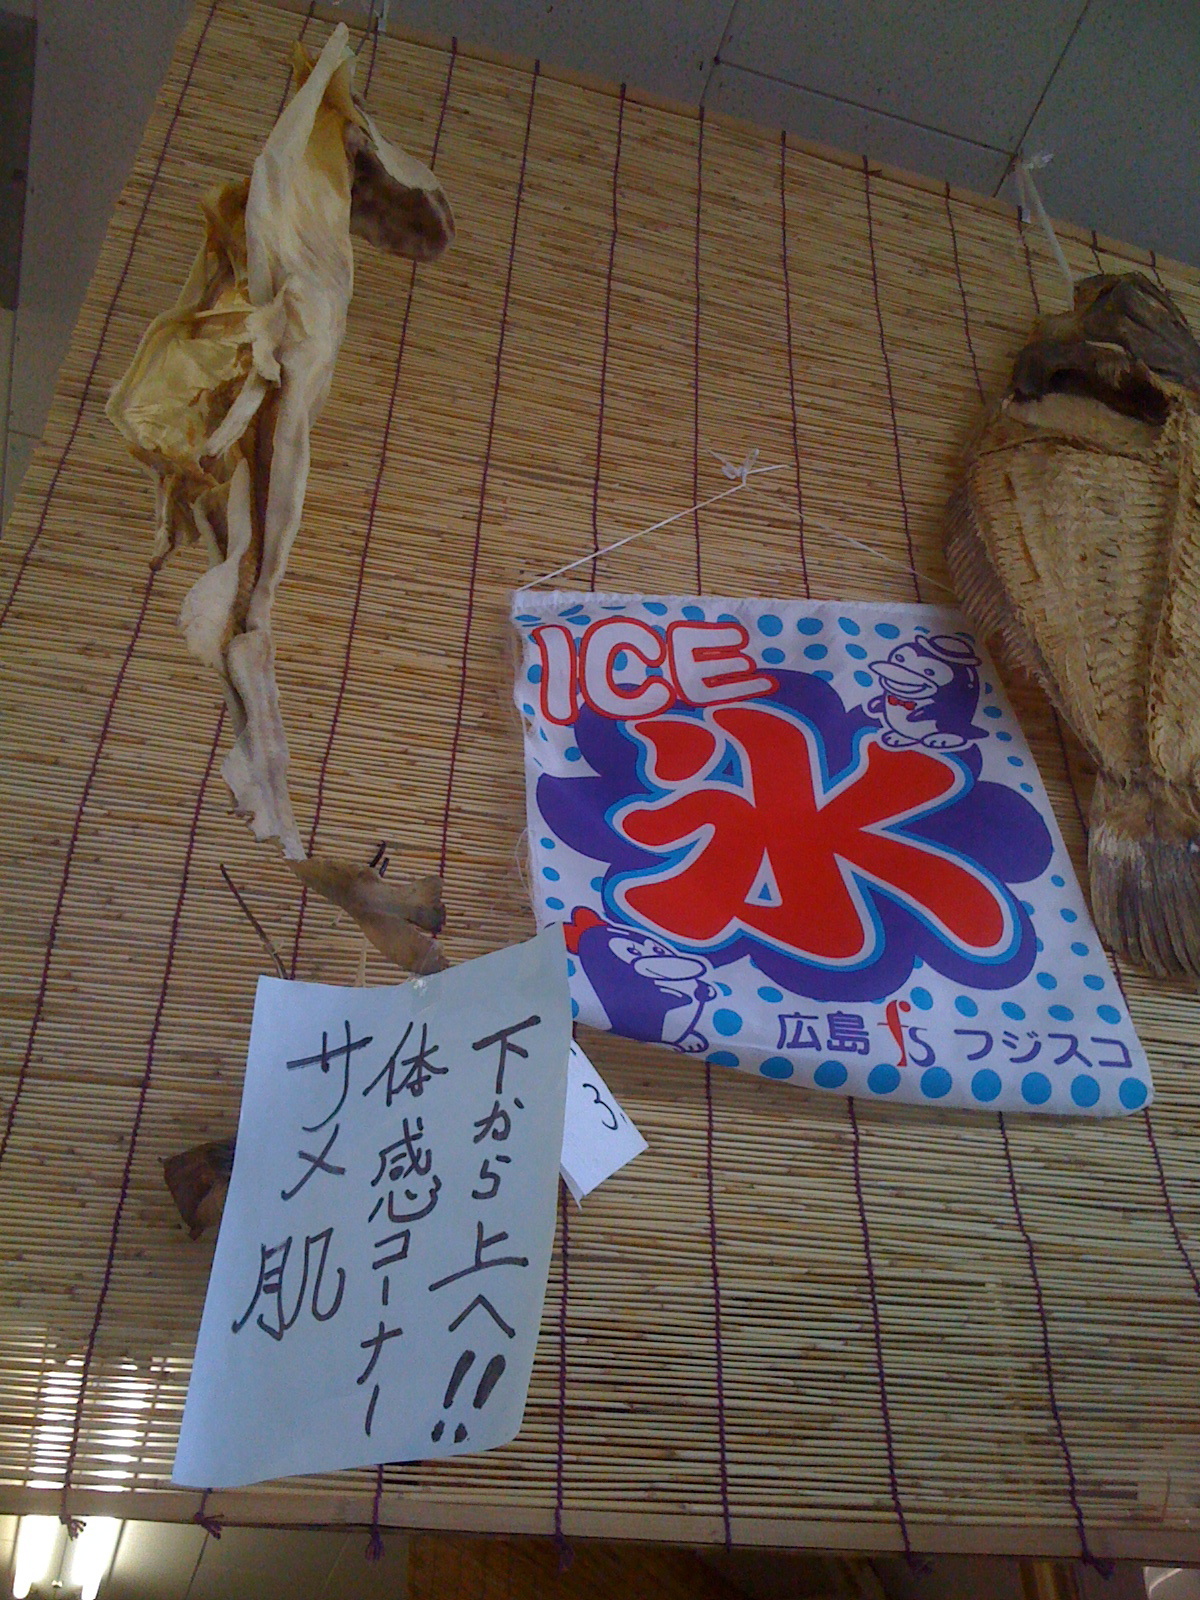 ICE
氷
広島 fs フジスコ
下から上へ!!
体感コーナー
サメ肌
3